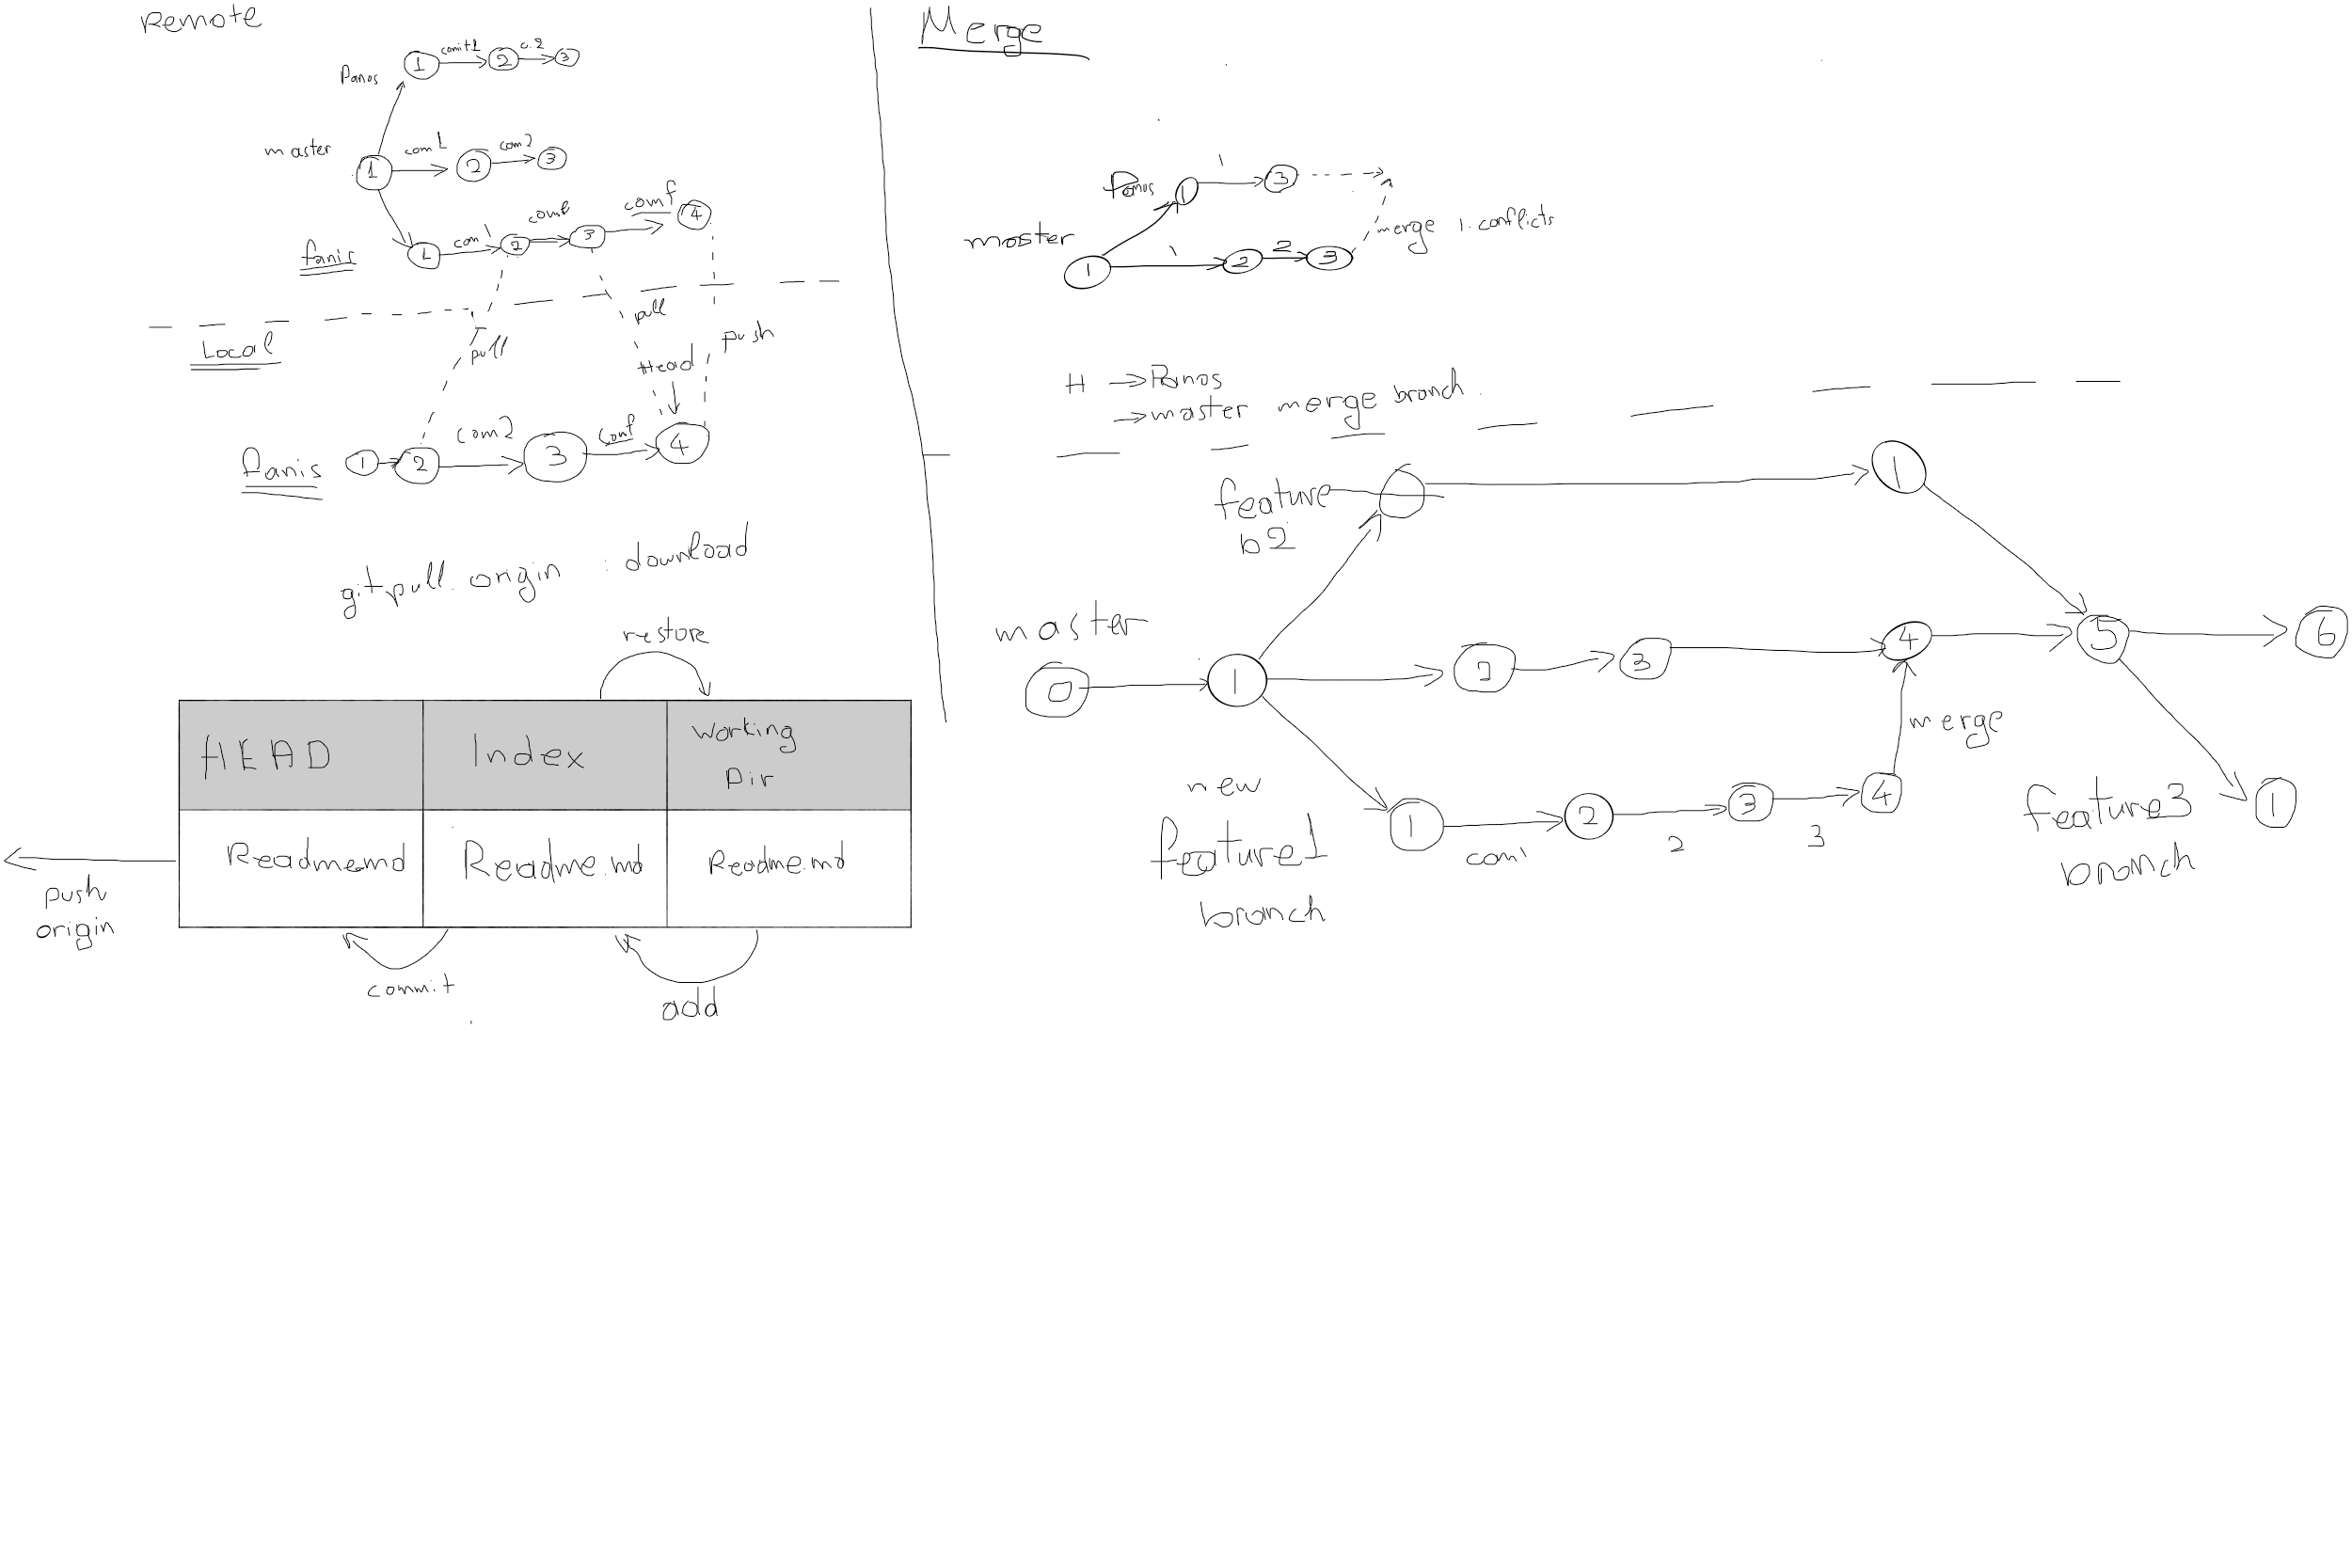 Remote
Panos
1
comit1
2
c.2
3
master
1
com1
2
com2
3
fanis
1
com1
2
3
comf
4
Local
pull
pull
push
Head
fanis
1
2
com2
3
conf
4
git pull origin : download
restore
HEAD
Index
Working
Dir
Readme.md
Readme.md
Readme.md
push
origin
commit
add
Merge
Panos
1
1
3
master
1
1
2
2
3
merge 1. conflicts
H → Panos
→ master merge branch.
feature
b2
1
master
0
1
2
3
4
5
6
merge
new
feature1
branch
1
com1
2
2
3
3
4
feature3
branch
1